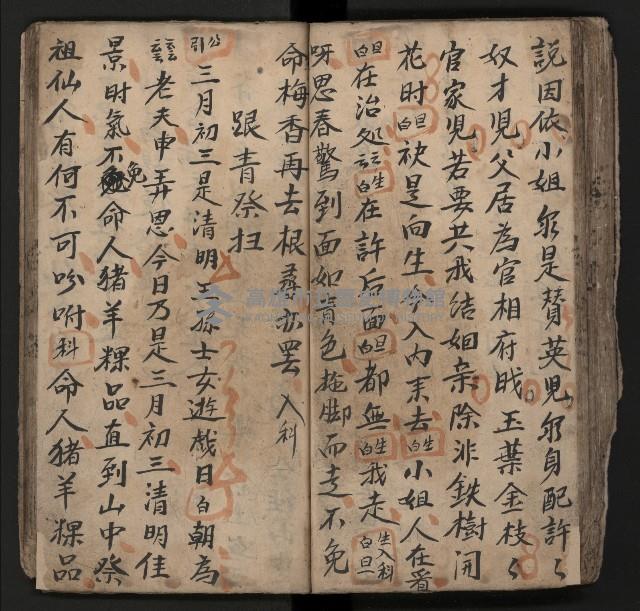 說因依小姐尔是賛英児尔自配許〻
奴才児父居為官相府戝玉葉金枝〻
官家児若要共我結姻亲除非鉄樹開
花时白旦袂是向生介入內末去白生小姐人在看
白旦在治処白生在許后面白旦都無白生我走白旦生入科
呀思春驚到面如青色拖脚而走不免
命梅香再去根尋亦罢入科
跟青祭扫
引公三月初三是清明王孫士女遊戲日白朝為
老夫申弄思今日乃是三月初三清明佳
景时氣不免命人豬羊粿品直到山中祭
祖仙人有何不可吩咐科命人豬羊粿品
高雄市立歷史博物館
KAOHSIUNG MUSEUM OF HISTORY